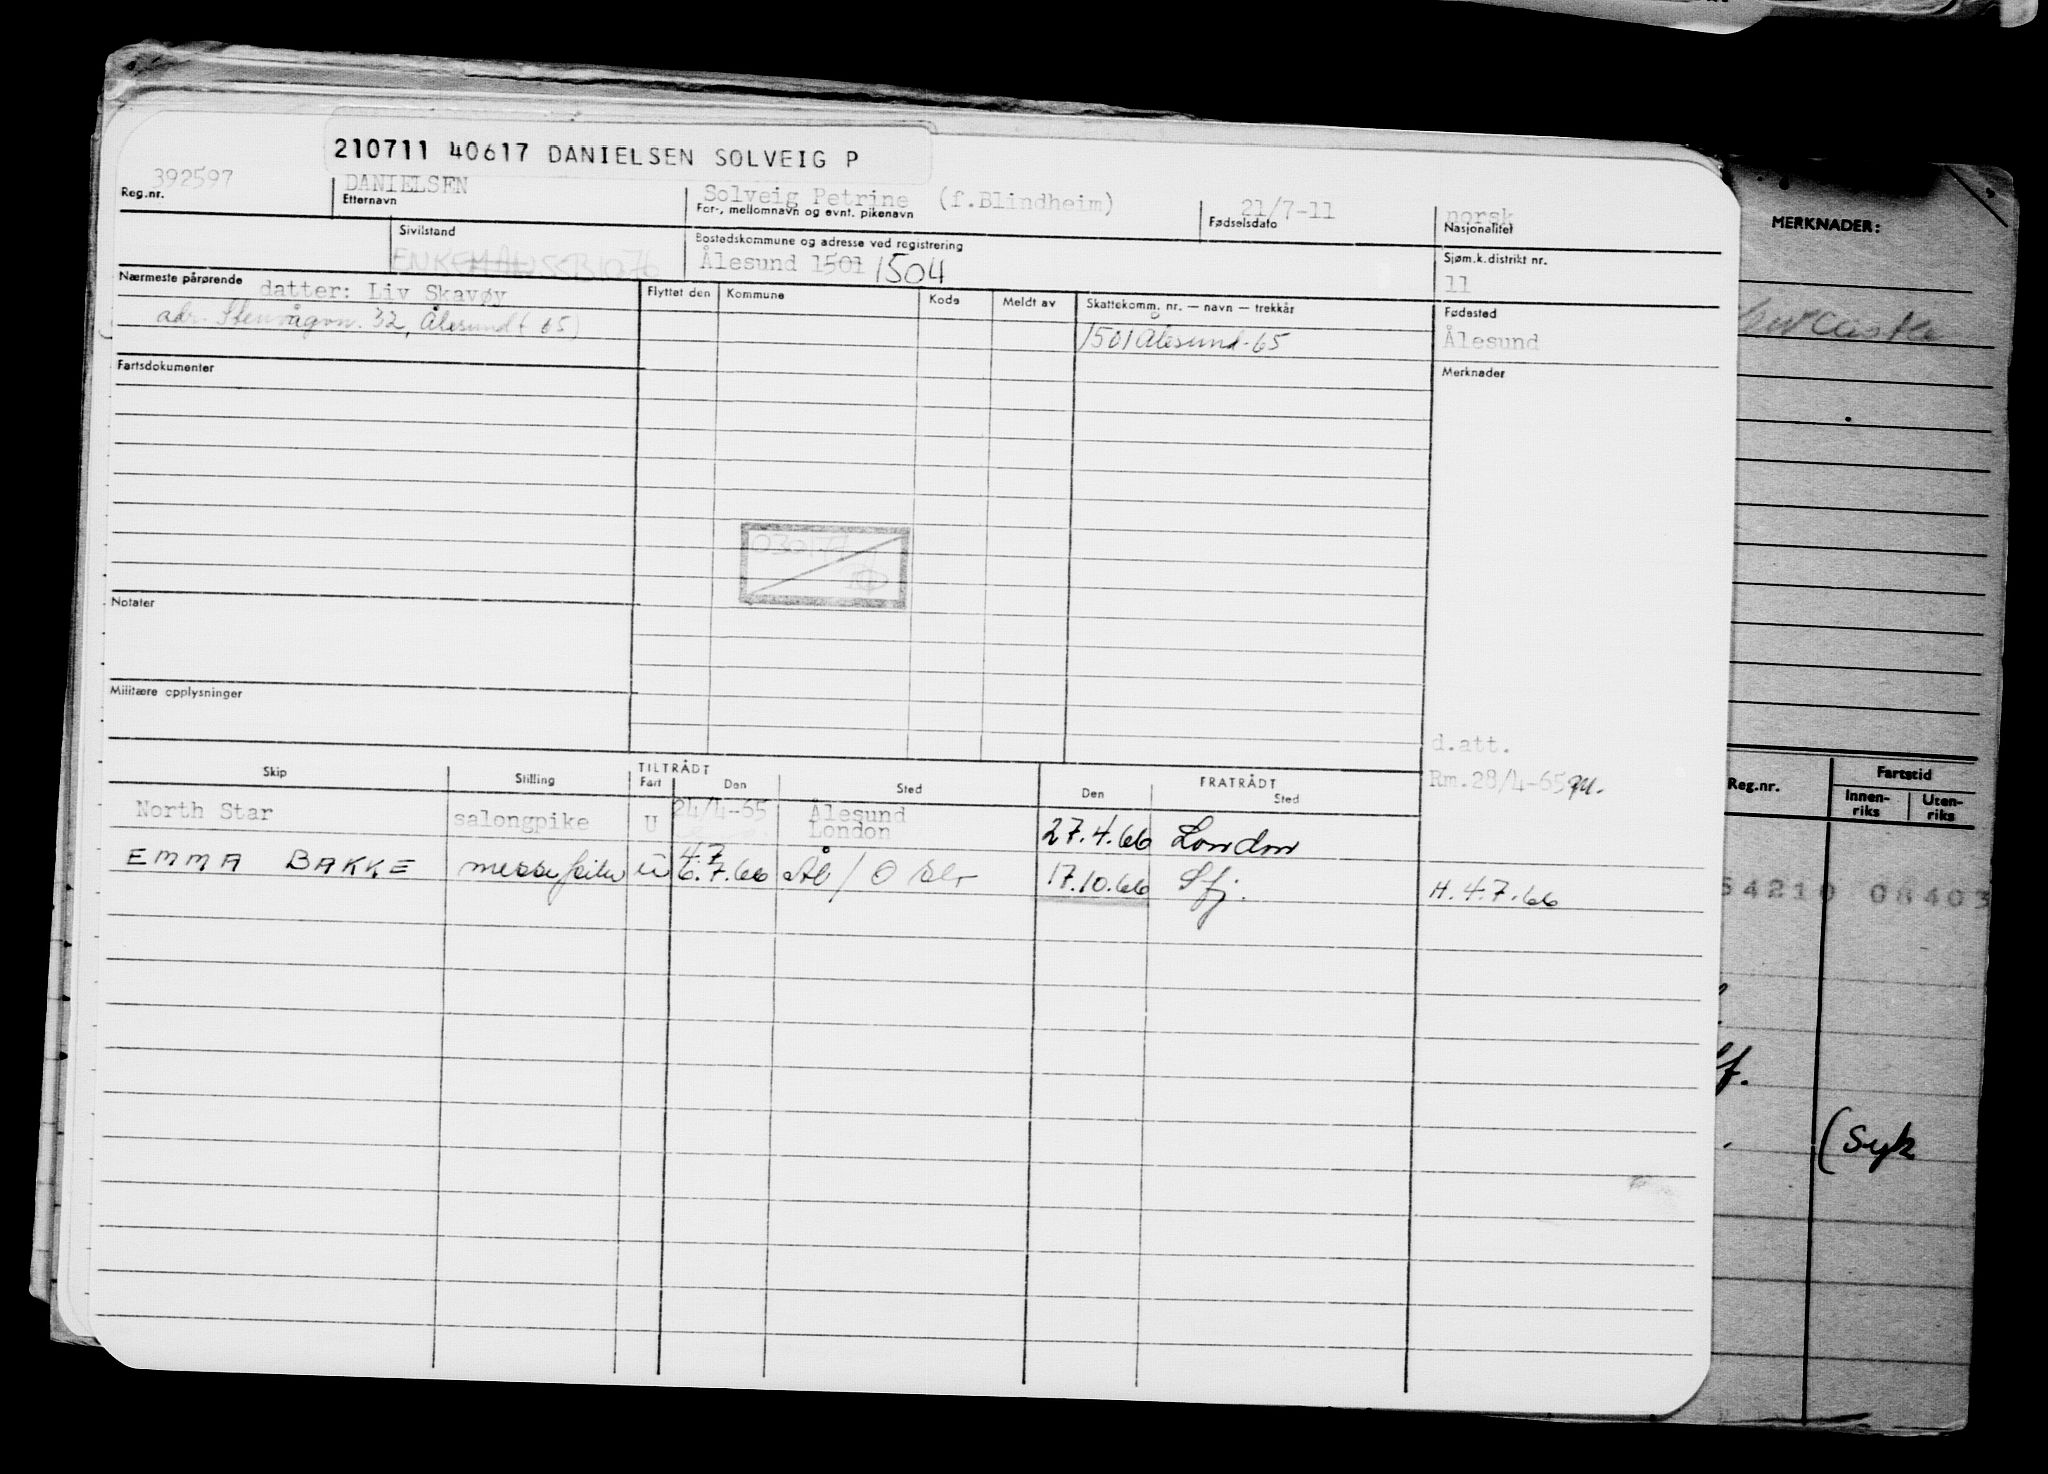 210711 40617 DANIELSEN SOLVEIG P
392597 DANIELSEN Solveig Petrine (f.Blindheim) 21/7-11 norsk
Reg.nr. Etternavn For-, mellomnavn og evnt. pikenavn Fødselsdato Nasjonalitet
Sivilstand Bostedskommune og adresse ved registrering Sjøm.k.distrikt nr.
Ålesund 1501 1504 11
Nærmeste pårørende datter: Liv Skavøy Flyttet den Kommune Kode Meldt av Skattekomm. nr. — navn — trekkår Fødested
adr. Stenvågvn. 32, Ålesund (65) 1501 Ålesund-65 Ålesund
Fartsdokumenter Merknader
Notater
Militære opplysninger
d.att.
Rm.28/4-65
Skip Stilling TILTRÅDT Fart Den Sted FRATRÅDT Den Sted
North Star salongpike U 24/4-65 Ålesund
London 27.4.66 London
EMMA BAKKE u 4.7
6.7.66 Ål / 17.10.66 Sfj. H. 4.7.66
MERKNADER:
Reg.nr. Fartstid
Innen-
riks Uten-
riks
54210 08403
(Syk